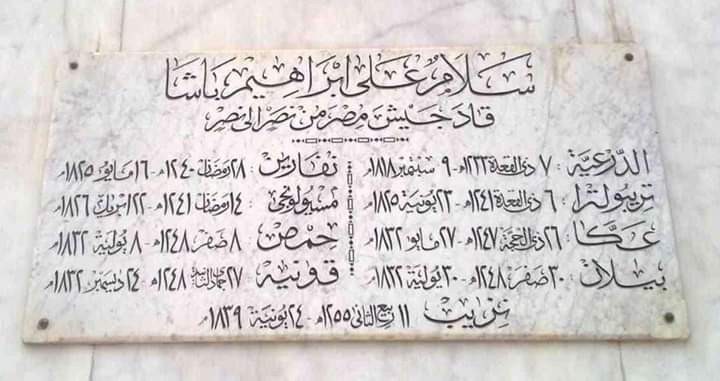 سلام على ابراهيم باشا
قاد جيش مصر من نصر الى نصر
الدرعية : ٧ ذى القعدة ١٢٣٣هـ - ٩ سبتمبر ١٨١٨م
تريبولتزا : ٦ ذى القعدة ١٢٤١هـ - ٢٣ يونية ١٨٢٥م
عكا : ٢٦ ذى الحجة ١٢٤٧هـ - ٢٧ مايو ١٨٣٢م
بيلان : ٣٠ صفر ١٢٤٨هـ - ٣٠ يولية ١٨٣٢م
نفارين : ٢٨ رمضان ١٢٤٠هـ - ١٦ مايو ١٨٢٥م
مسولونجى : ١٤ رمضان ١٢٤١هـ - ٢٢ ابريل ١٨٢٦م
حمص : ٨ صفر ١٢٤٨هـ - ٨ يولية ١٨٣٢م
قونية : ٢٧ جماد الثانية ١٢٤٨هـ - ٢٤ ديسمبر ١٨٣٢م
نزيب : ١١ ربيع الثانى ١٢٥٥هـ - ٢٤ يونية ١٨٣٩م